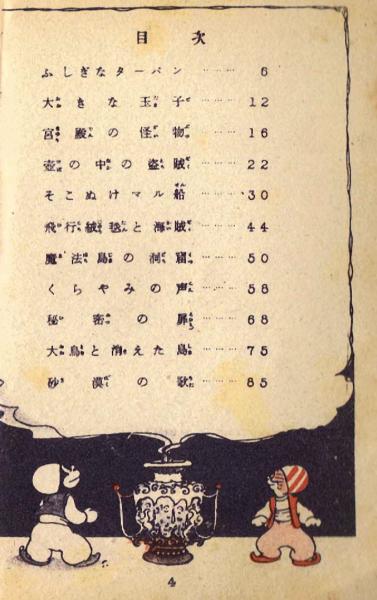 目次
ふしぎなターバン ……… 6
大きな玉子 ……… 12
宮殿の怪物 ……… 16
壺の中の盗賊 ……… 22
そこぬけマル船 ……… 30
飛行絨毯と海賊 ……… 44
魔法島の洞窟 ……… 50
くらやみの声 ……… 58
秘密の扉 ……… 68
大鳥と消えた島 ……… 75
砂漠の歌 ……… 85
4